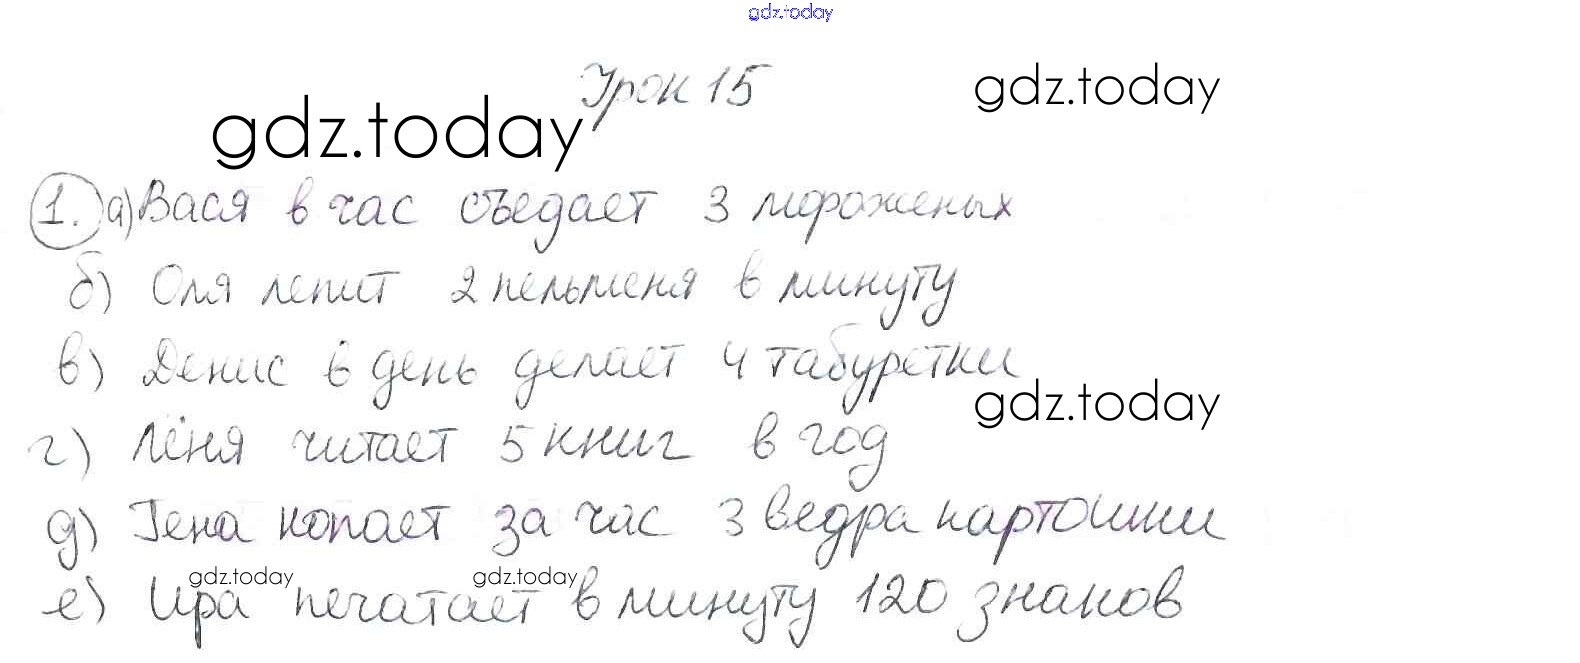 gdz.today
Урок 15
gdz.today
gdz.today
1. а) Вася в час съедает 3 мороженых
б) Оля лепит 2 пельменя в минуту
в) Денис в день делает 4 табуретки
gdz.today
г) Лёня читает 5 книг в год
д) Гена копает за час 3 ведра картошки
gdz.today gdz.today
е) Ира печатает в минуту 120 знаков